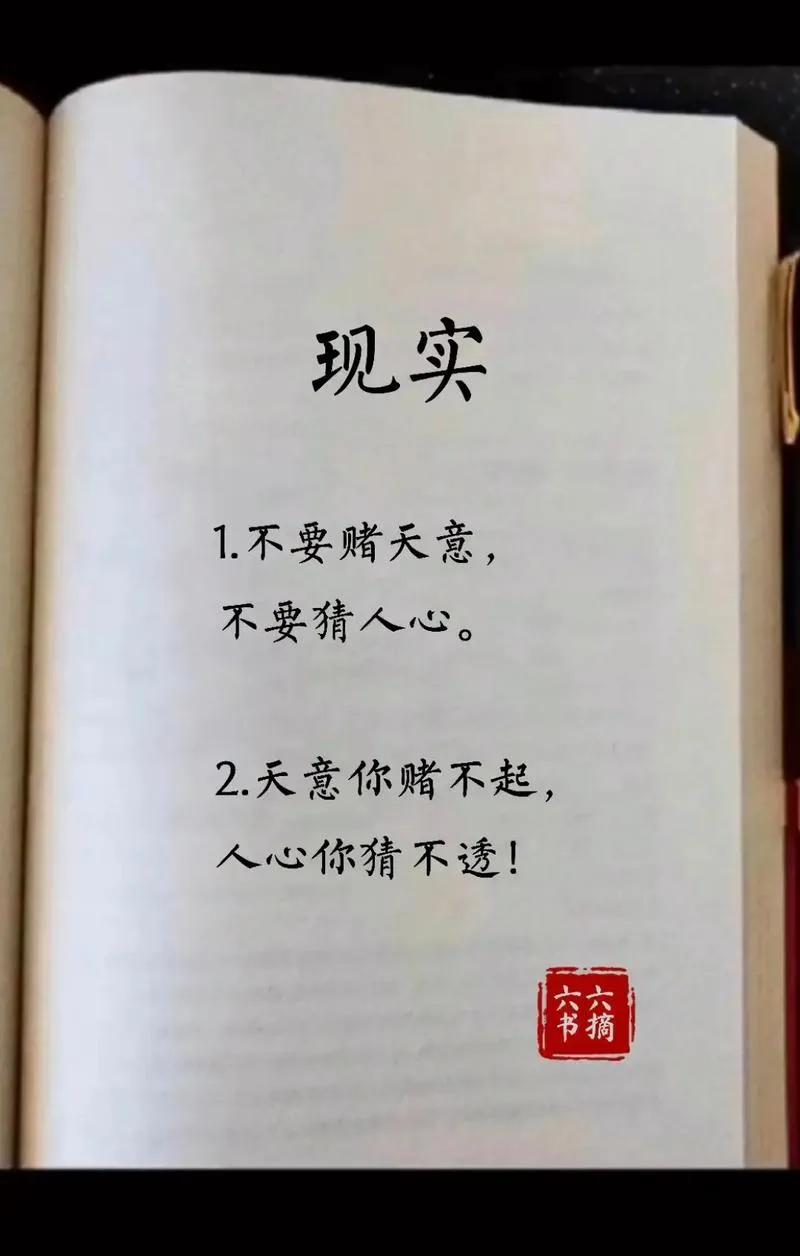 现实
1.不要赌天意，
不要猜人心。
2.天意你赌不起，
人心你猜不透！
六六
书摘